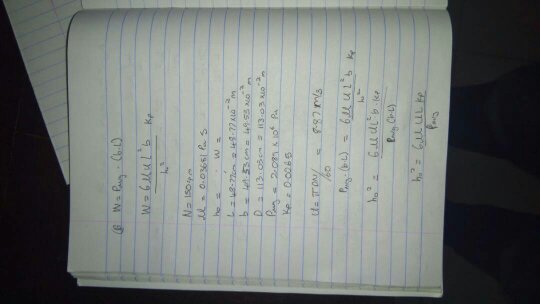 W = Pavg · (b·L)
W = 6 μ U L² b Kp
h₀²
N = 150 rpm
μ = 0.03651 Pa s
h₀ = W =
L = 48.77cm = 48.77 × 10⁻² m
b = 49.53cm = 49.53 × 10⁻² m
D = 113.03cm = 113.03 × 10⁻² m
Pavg = 2.081 × 10⁶ Pa
Kp = 0.0265
U = πDN/60 = 8.87 m/s
Pavg · (b·L) = 6 μ U L² b Kp
h₀²
h₀² = 6 μ U L² b Kp
Pavg (b·L)
h₀² = 6 μ U L Kp
Pavg